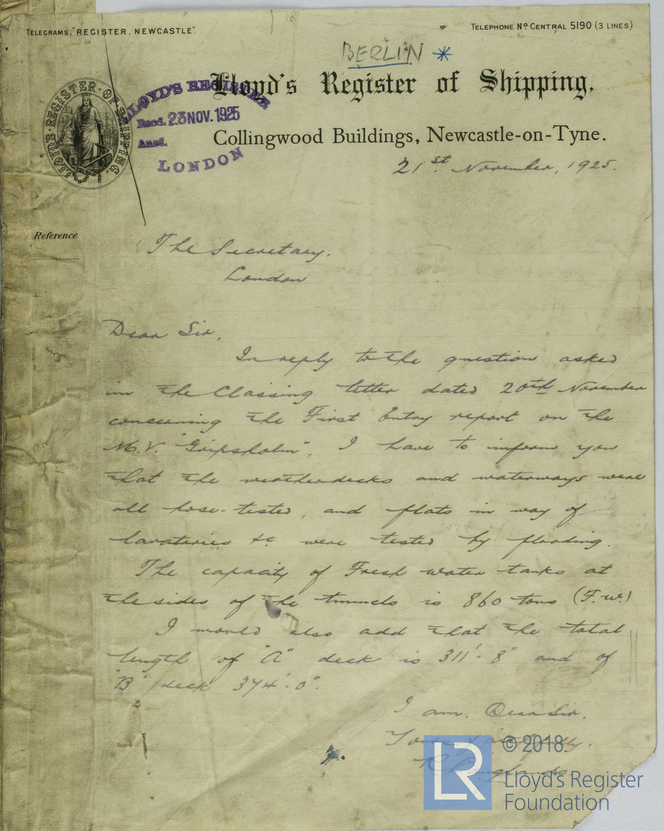 TELEGRAMS, "REGISTER, NEWCASTLE"
TELEPHONE No CENTRAL 5190 (3 LINES)
BERLIN *
Lloyd's Register of Shipping,
LLOYD'S REGISTER OF SHIPPING.
LLOYD'S REGISTER
Recd. 23 NOV. 1925
Ansd.
LONDON
Collingwood Buildings, Newcastle-on-Tyne.
21st November, 1925.
Reference
The Secretary.
London
Dear Sir,
In reply to the question asked
in the Classing letter dated 20th November
concerning the First Entry report on the
M.V. "Gripsholm", I have to inform you
that the weatherdecks and waterways were
all hose-tested, and flats in way of
lavatories &c were tested by flooding.
The capacity of Fresh water tanks at
the sides of the tunnels is 860 tons (F.W.)
I would also add that the total
length of "A" deck is 311'-8" and of
"B" deck 374'-0".
I am, Dear Sir,
Yours faithfully.
© 2018
LR
Lloyd's Register
Foundation